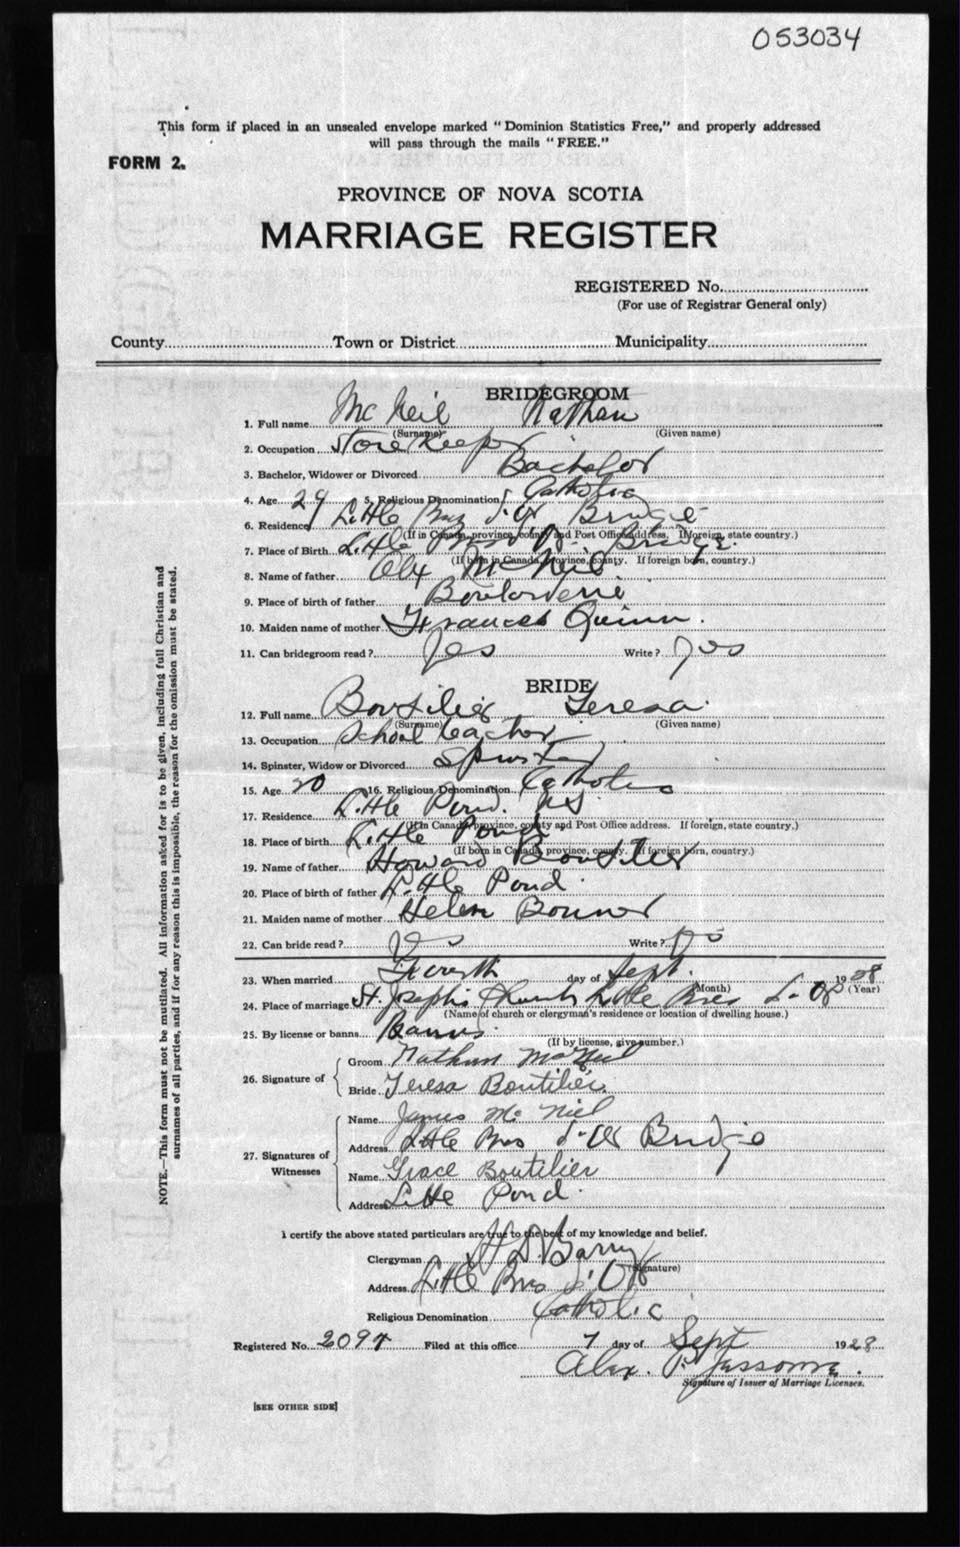 053034
This form if placed in an unsealed envelope marked "Dominion Statistics Free," and properly addressed
will pass through the mails "FREE."
FORM 2.
PROVINCE OF NOVA SCOTIA
MARRIAGE REGISTER
REGISTERED No.
(For use of Registrar General only)
County Town or District Municipality
BRIDEGROOM
1. Full name McNeil Nathan
(Surname) (Given name)
2. Occupation Store Keeper
3. Bachelor, Widower or Divorced Bachelor
4. Age 29 5. Religious Denomination Catholic
6. Residence Little Bras d'Or Bridge
(If in Canada, province, county and Post Office address. If foreign, state country.)
7. Place of Birth Little Bras d'Or Bridge.
(If born in Canada, province, county. If foreign born, country.)
8. Name of father Alex McNeil
9. Place of birth of father Boularderie
10. Maiden name of mother Frances Quinn.
11. Can bridegroom read? Yes Write? Yes
BRIDE
12. Full name Boutilier Teresa.
(Surname) (Given name)
13. Occupation School teacher
14. Spinster, Widow or Divorced Spinster
15. Age 20 16. Religious Denomination Catholic
17. Residence Little Pond. NS.
(If in Canada province, county and Post Office address. If foreign, state country.)
18. Place of birth Little Pond
(If born in Canada, province, county. If foreign born, country.)
19. Name of father Howard Boutilier
20. Place of birth of father Little Pond.
21. Maiden name of mother Helen Bonner
22. Can bride read? Yes Write? Yes
23. When married Fourth day of Sept. 1928
(Month) (Year)
24. Place of marriage St. Joseph's Church Little Bras d'Or
(Name of church or clergyman's residence or location of dwelling house.)
25. By license or banns Banns.
(If by license, give number.)
26. Signature of Groom Nathan McNeil
Bride Teresa Boutilier
27. Signatures of Witnesses Name James McNiel
Address Little Bras d'Or Bridge
Name Grace Boutilier
Address Little Pond.
I certify the above stated particulars are true to the best of my knowledge and belief.
Clergyman Barry
(Signature)
Address Little Bras d'Or
Religious Denomination Catholic
Registered No. 2097 Filed at this office 7 day of Sept 1928
Alex. P. Jessome.
Signature of Issuer of Marriage Licenses.
[SEE OTHER SIDE]
NOTE.—This form must not be mutilated. All information asked for is to be given, including full Christian and
surnames of all parties, and if for any reason this is impossible, the reason for the omission must be stated.